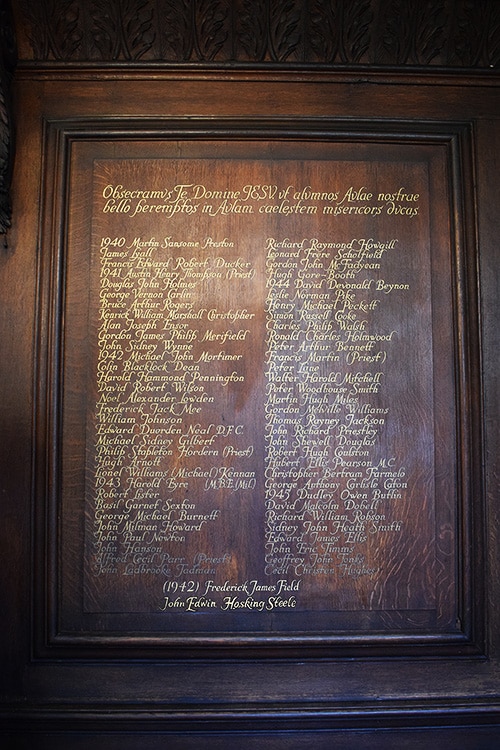 Obsecramvs Te Domine JESV vt alvmnos Avlae nostrae
bello peremptos in Avlam caelestem misericors dvcas
1940 Martin Sansome Preston
James Lyall
Francis Edward Robert Ducker
1941 Austin Henry Thompson (Priest)
Douglas John Holmes
George Vernon Carlin
Bruce Arthur Rogers
Kenrick William Marshall Christopher
Alan Joseph Ensor
Gordon James Philip Merifield
John Sidney Wynne
1942 Michael John Mortimer
Colin Blacklock Dean
Harold Hammond Pennington
David Robert Wilson
Noel Alexander Lowden
Frederick Jack Mee
William Johnson
Edward Duorden Neal D.F.C.
Michael Sidney Gilbert
Philip Stapleton Hordern (Priest)
Hugh Arnott
Lionel Williams (Michael) Kennan
1943 Harold Eyre (M.B.E.(Mil.)
Robert Lister
Basil Garnet Sexton
George Michael Burnett
John Milman Howard
John Paul Newton
John Hanson
Alfred Cecil Parr (Priest)
John Ladbrooke Jadman
Richard Raymond Howgill
Leonard Frere Scholfield
Gordon John McFadyean
Hugh Gore-Booth
1944 David Devonald Beynon
Leslie Norman Pike
Henry Michael Pockett
Simon Russell Cooke
Charles Philip Walsh
Ronald Charles Holmwood
Peter Arthur Bennett
Francis Martin (Priest)
Peter Lane
Walter Harold Mitchell
Peter Woodhouse Smith
Martin Hugh Miles
Gordon Melville Williams
Thomas Rayney Jackson
John Richard Priestley
John Shewell Douglas
Robert Hugh Coulson
Hubert Ellis Pearson M.C.
Christopher Bertram Farmelo
George Anthony Carlisle Caton
1945 Dudley Owen Buttin
David Malcolm Dobell
Richard William Robson
Sidney John Heath Smith
Edward James Ellis
John Eric Timms
Geoffrey John Jones
Cecil Christen Hughes
(1942) Frederick James Field
John Edwin Hosking Steele